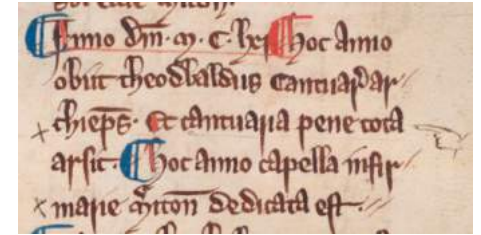 Anno dm̅. m. c. lxj Hoc Anno
obiit theodbaldus Cantuar̉ ar
chiep̅s. Et cantuaria pene tota
arsit. Hoc Anno capella infir
marie Miton̅ dedicata est.